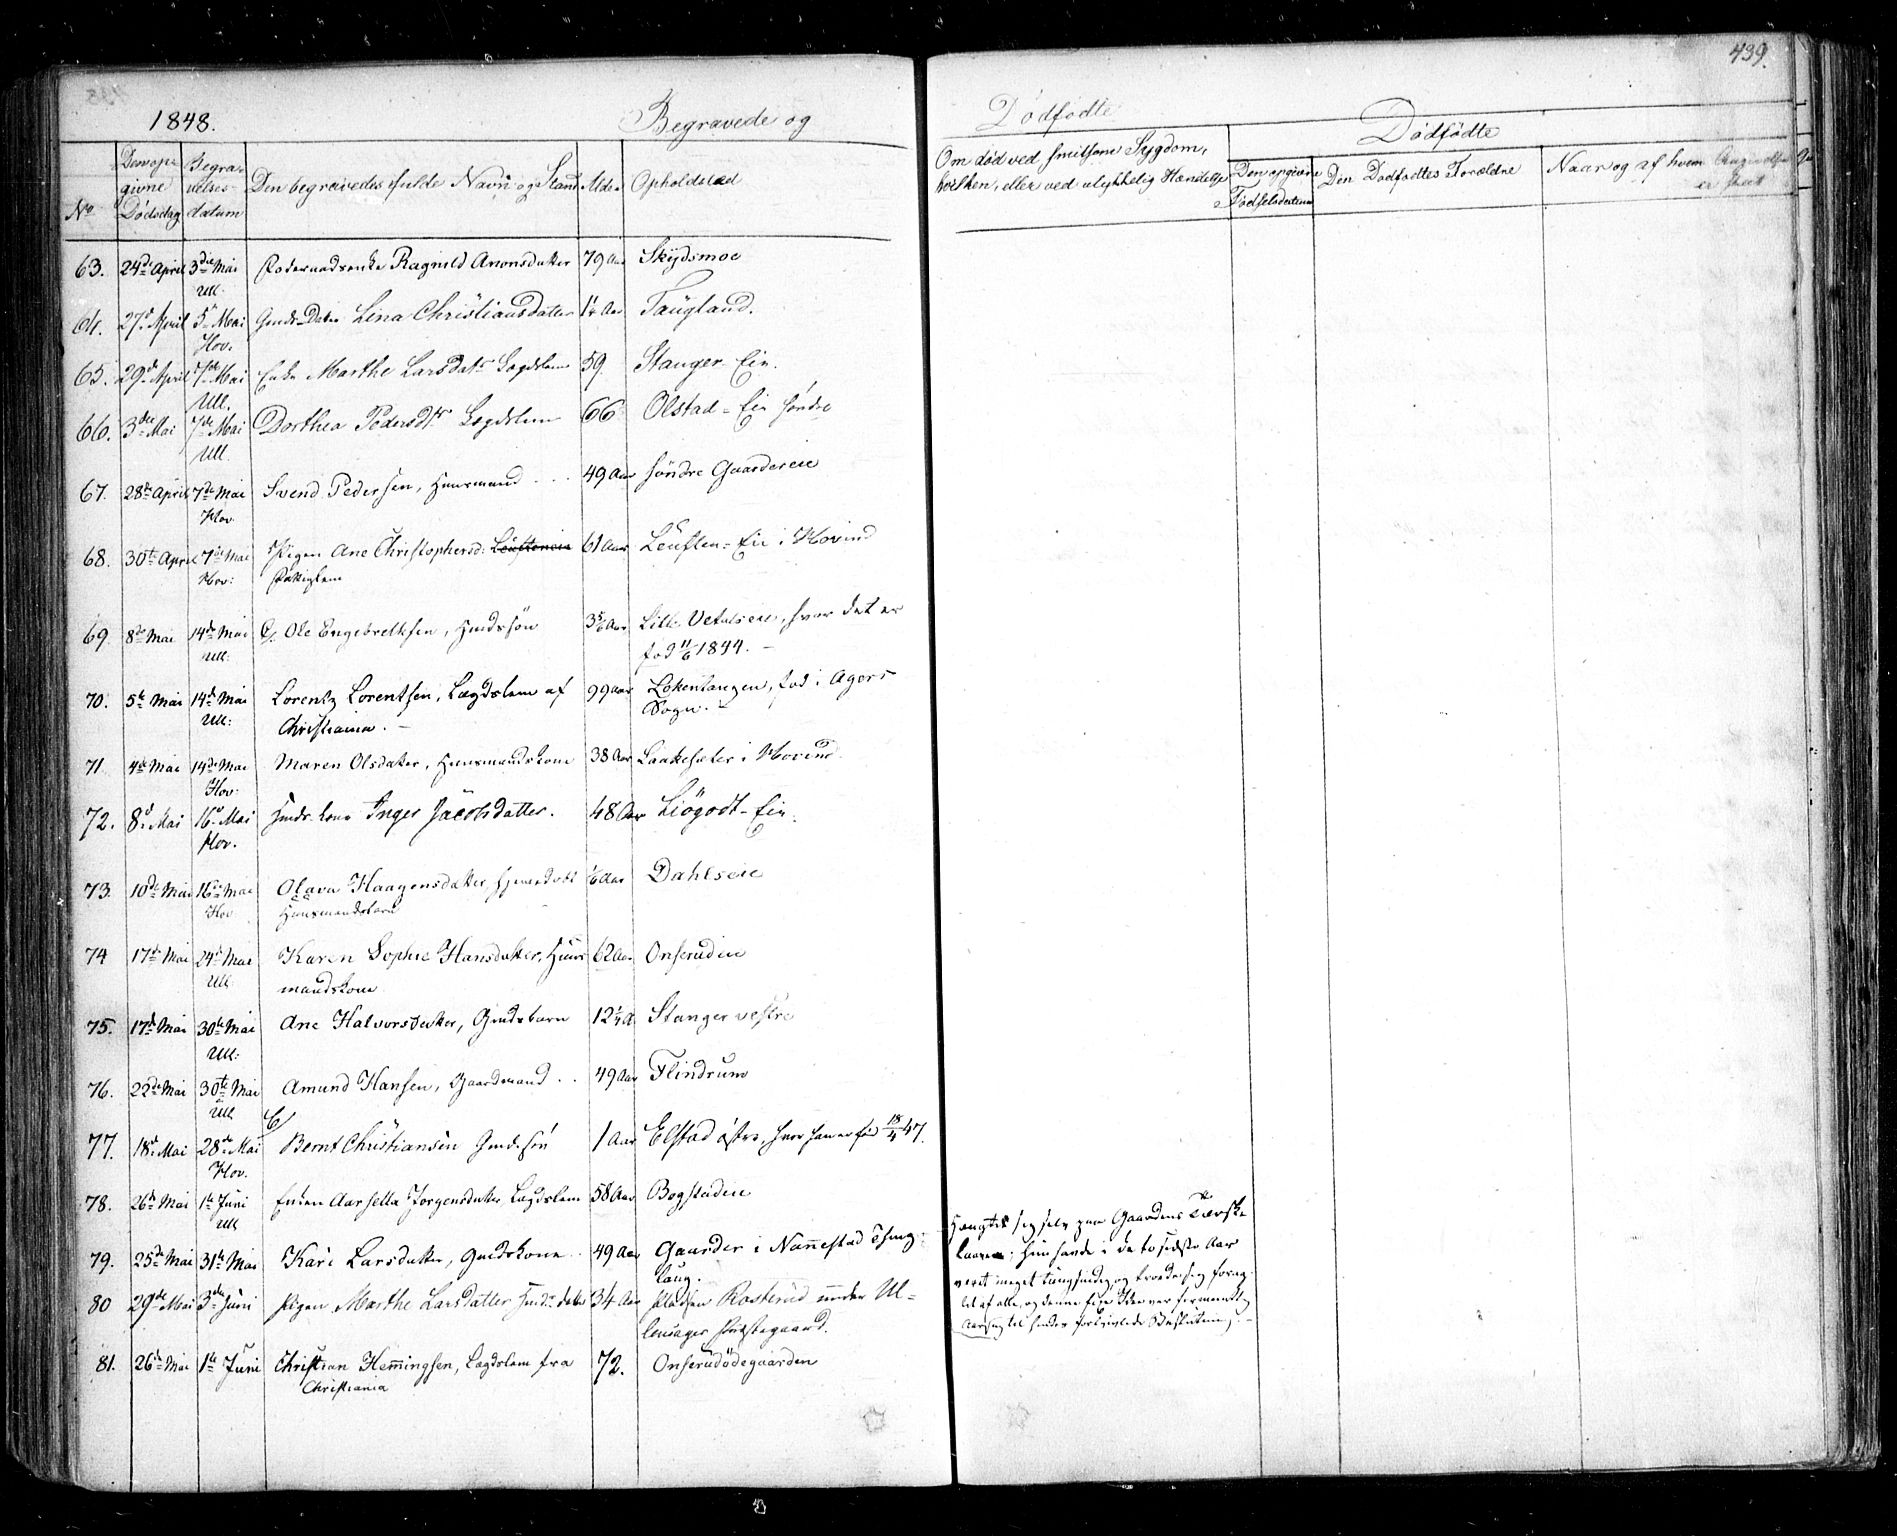 439.
1848. Begravede og Dödfödte
Dödfödte
No
Den opgivne Dödsdag
Begravelses datum
Den begravedes fulde Navn og Stand
Alder
Opholdsted
Om död ved smitsom Sygdom, hvilken, eller ved ulykkelig Hændelse
Den opgivne Födselsdatum
Den Dödfödtes Forældre
Naar og af hvem Angivelse er skeet
63. 24de April 3die Mai Ragnild Anonsdatter 79 Aar Skÿdsmoe
Ull.
64. 27d April 5te Mai Gmds-Dater Lina Christiansdatter Aar Taugland.
Hov.
65. 29de April 7de Mai Enke Marthe Larsdatr Lægdslem 59 Stanger-Eie.
Ull.
66. 3die Mai 7de Mai Dorthea Pedersdtr Lægdslem 66 Olstad-Eie söndre
Ull.
67. 28de April 7de Mai Svend Pedersen, Huusmand . . . 49 Aar söndre Gaardereie
Hov.
68. 30te April 7de Mai Pigen Ane Christophersd: 61 Aar Leuften-Eie i Hovind
Hov:
69. 8de Mai 14de Mai Ole Engebrethsen, Hmdssön 3 5/6 Aar Lille Vetalseie, hvor det er
Ull: fød 11/6 1844. -
70. 5te Mai 14de Mai Lorentz Lorentsen, Lægdslem af 99 aar Lökenlangen, fød i Agers
Ull: Christiania. - Sogn. -
71. 4de Mai 14de Mai Maren Olsdatter, Huusmandskone 38 Aar Laakesæter i Hovind.
Hov:
72. 8d Mai 16d Mai Hmds-kone Inger Jacobsdatter. 48 Aar Liögodt-Eie.
Hov.
73. 10de Mai 16de Mai Olava Haagensdatter, 1/6 Aar Dahlseie
Hov Huusmandsbarn
74 17de Mai 24de Mai Karen Sophie Hansdatter, Huus 62 Aar Onserudeie
Ull mandskone
75. 17de Mai 30te Mai Ane Halvorsdatter, Gmdsbarn 12 1/4 A Stanger vestre
Ull:
76. 22de Mai 30te Mai Amund Hansen, Gaardmand . . 49 Aar Flindrum
Ull
77. 18d Mai 28de Mai Bernt Christiansen Gmdssön 1 Aar Elstad östre, hvor han er fød 18/4 47.
Hov.
78. 26de Mai 1te Juni Enken Jorgensdatter Lægdslem 58 Aar Bogstadeie
Ull
79. 25de Mai 31te Mai Kari Larsdatter, Gmdskone . 49 Aar Gaarder i Nannestad Thing-
laug.
Hængte sig selv paa Gaardens Tærske
laave; hun havde i de to sidste Aar
været meget tungsindig og troede sig forag-
tet af alle, og denne fixe Idee var formentlig
Aarsag til hendes fortvivlede Beslutning. -
80 29de Mai 3die Juni Pigen Marthe Larsdatter Hmds-datter 34 Aar Pladsen Rosterud under Ul-
lensager Præstegaard.
81. 26de Mai 1te Juni Christian Hemingsen, Lægdslem fra 72. Onserudödegaarden
Christiania